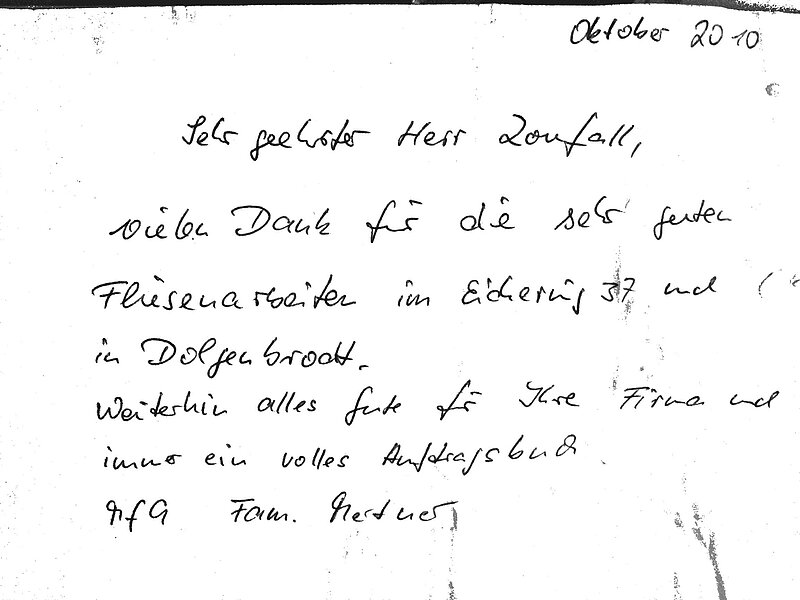 Oktober 2010
Sehr geehrter Herr Zonfall,
vielen Dank für die sehr guten
Fliesenarbeiten im Eichering 37 und
in Dolgenbrodt.
Weiterhin alles Gute für Ihre Firma und
immer ein volles Auftragsbuch
MfG Fam.